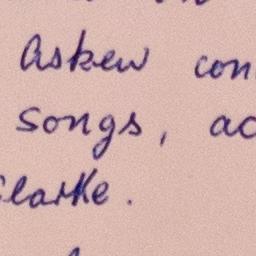 Askew con
songs, ac
Clarke.